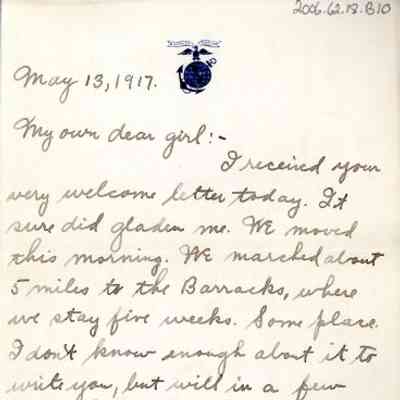 2006.62.18.B10
May 13, 1917.
My own dear girl:-
I received your
very welcome letter today. It
sure did gladen me. We moved
this morning. We marched about
5 miles to the Barracks, where
we stay five weeks. Some place.
I don't know enough about it to
write you, but will in a few